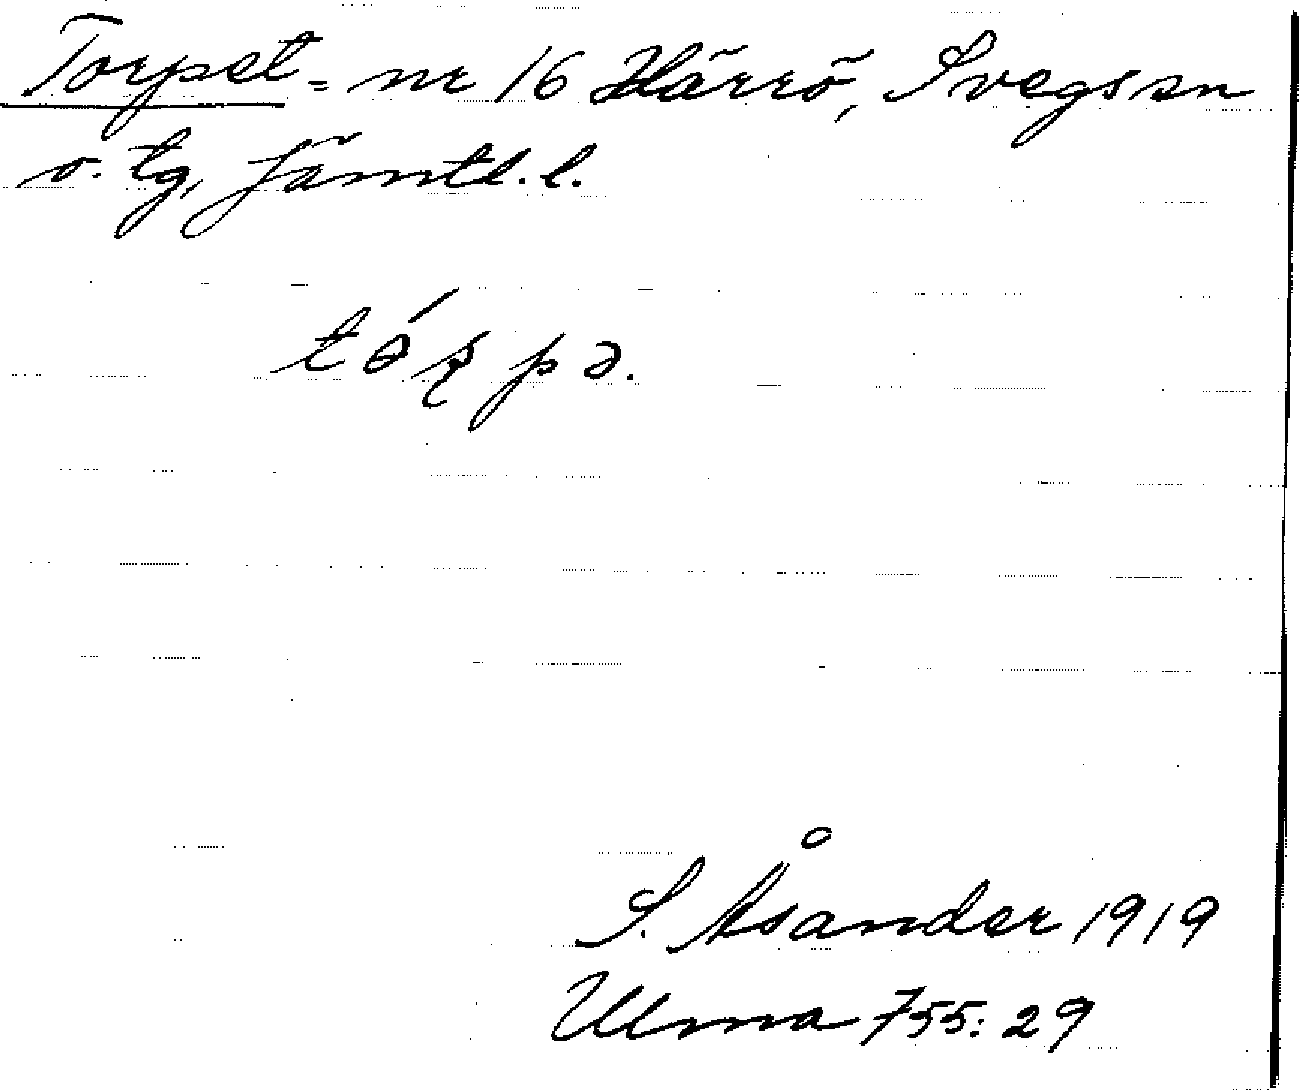 Torpet = nr 16 Härrö, Svegs sn
o. tg, Jämtl. l.
S. Åsander 1919
Ulma 755: 29